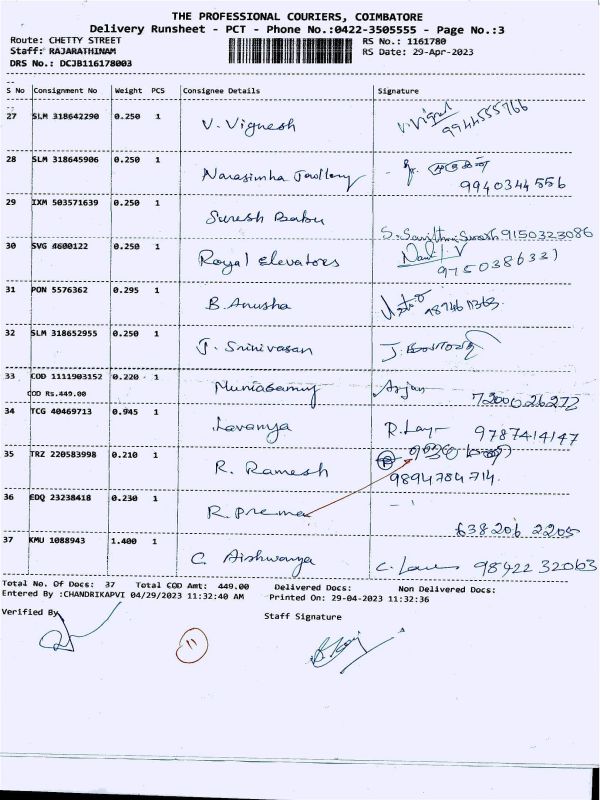 THE PROFESSIONAL COURIERS, COIMBATORE
Delivery Runsheet - PCT - Phone No.:0422-3505555 - Page No.:3
Route: CHETTY STREET RS No.: 1161780
Staff: RAJARATHINAM RS Date: 29-Apr-2023
DRS No.: DCJB116178003
S No Consignment No Weight PCS Consignee Details Signature
27 SLM 318642290 0.250 1 V. Vignesh V. Vignesh 9944555766
28 SLM 318645906 0.250 1 Narasimha Jewllery 9940344556
29 IXM 503571639 0.250 1 Suresh Babu S. Savithri Suresh 9150323086
30 SVG 4600122 0.250 1 Royal Elevators
31 PON 5576362 0.295 1 B. Anusha
32 SLM 318652955 0.250 1 J. Srinivasan J.
33 COD 1111903152 0.220 1 Muniasamy Arjun 7200026272
COD Rs.449.00
34 TCG 40469713 0.945 1 Lavanya 9787414147
35 TRZ 220583998 0.210 1 R. Ramesh 9894784714
36 EDQ 23238418 0.230 1 R. Prema 638206 2205
37 KMU 1088943 1.400 1 C. Aishwarya 98422 32063
Total No. Of Docs: 37 Total COD Amt: 449.00 Delivered Docs: Non Delivered Docs:
Entered By :CHANDRIKAPVI 04/29/2023 11:32:40 AM Printed On: 29-04-2023 11:32:36
Verified By Staff Signature
11